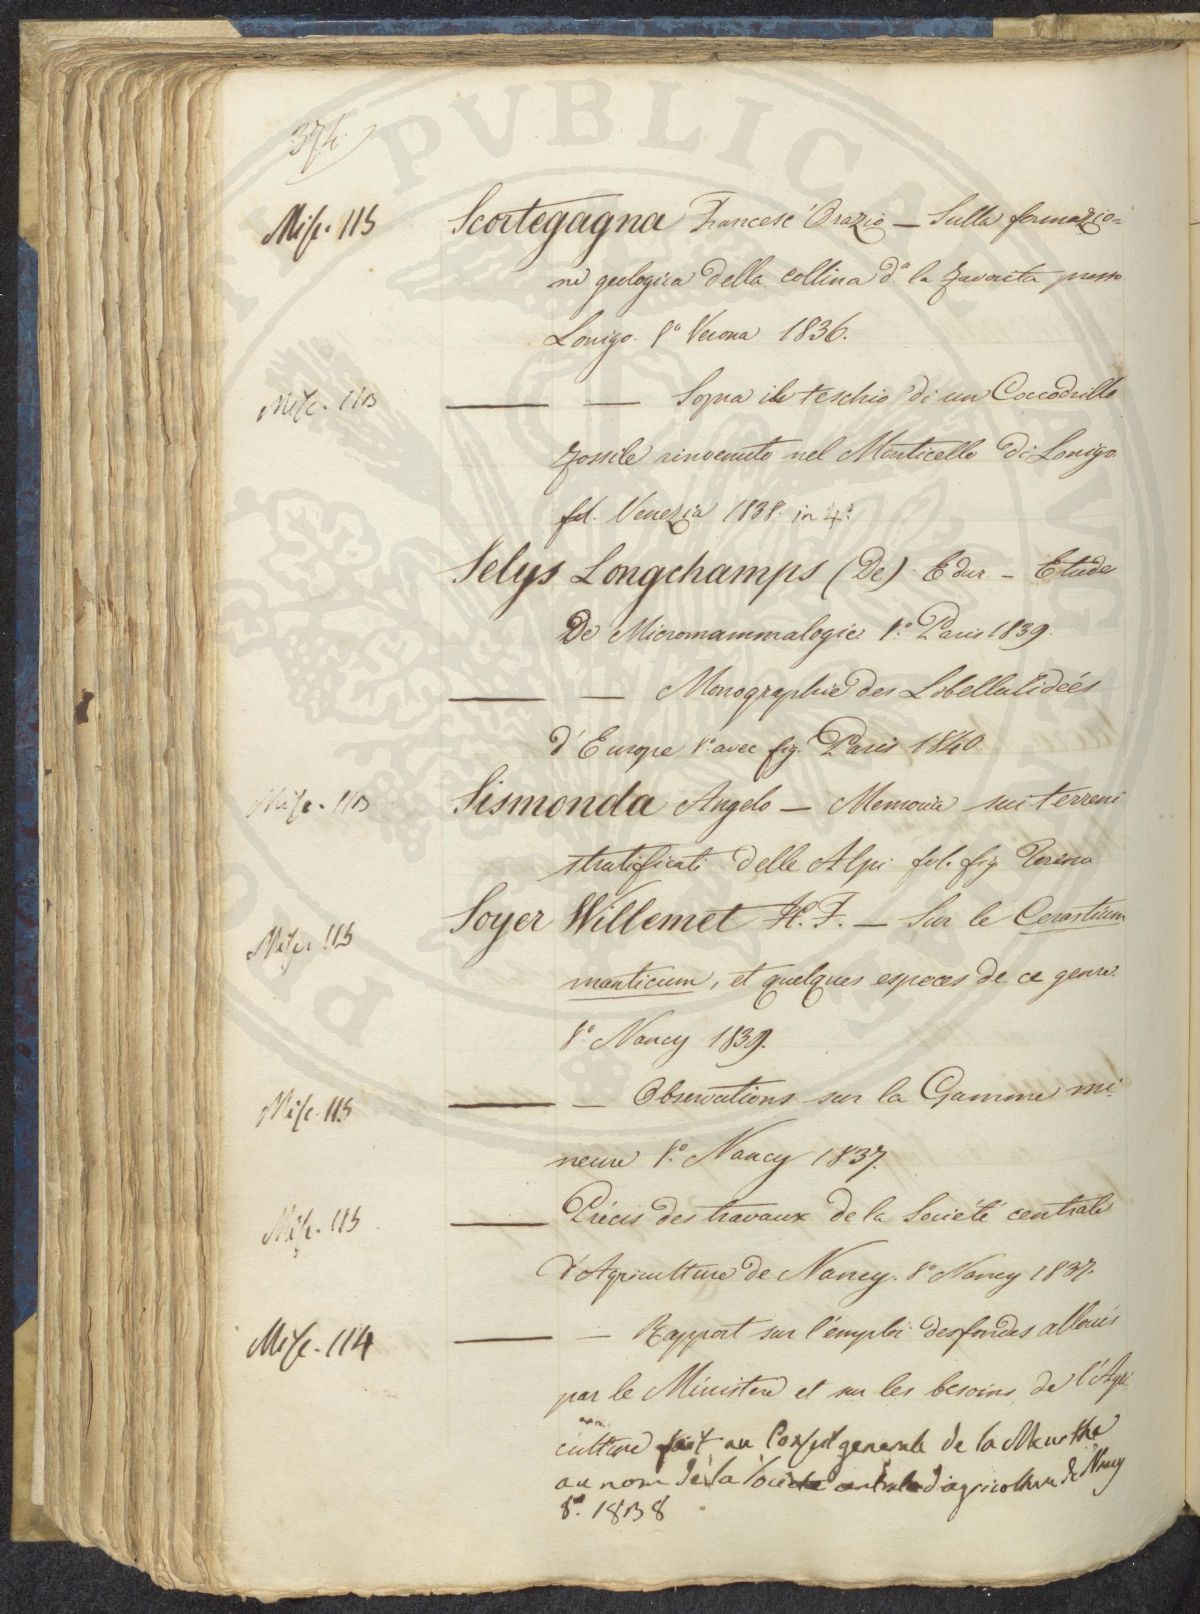 374
Misc. 115 Scortegagna Francesc' Orazio — Sulla formazio=
ne geologica della collina d.a la favorita presso
Lonigo. 8.o Verona 1836.
Misc. 113 — — Sopra il teschio di un Coccodrillo
fossile rinvenuto nel Monticello di Lonigo
fol. Venezia 1838. in 4.o
Selys Longchamps (De) Edm — Etude
De Micromammalogie 8.o Paris 1839.
— — Monographie des Libellulidées
d'Europe 8.o avec fig. Paris 1840.
Misc. 113 Sismonda Angelo — Memoria sui terreni
stratificati delle Alpi fol. fig Torino
Misc. 115 Soyer Willemet H. F. — Sur le Cerastium
manticum, et quelques especes de ce genre.
8.o Nancy 1839.
Misc. 115 — — Observations sur la Gamme mi-
neure 8.o Nancy 1837.
Misc. 115 — Précis des travaux de la Société centrale
d'Agriculture de Nancy. 8.o Nancy 1837.
Misc. 114 — — Rapport sur l'emploi des fondes alloués
par le Ministere et sur les besoins de l'Agri
culture fait au Conseil generale de la Meurthe
au nom de la Societe centrale d'agricolture de Nancy
8.o 1838